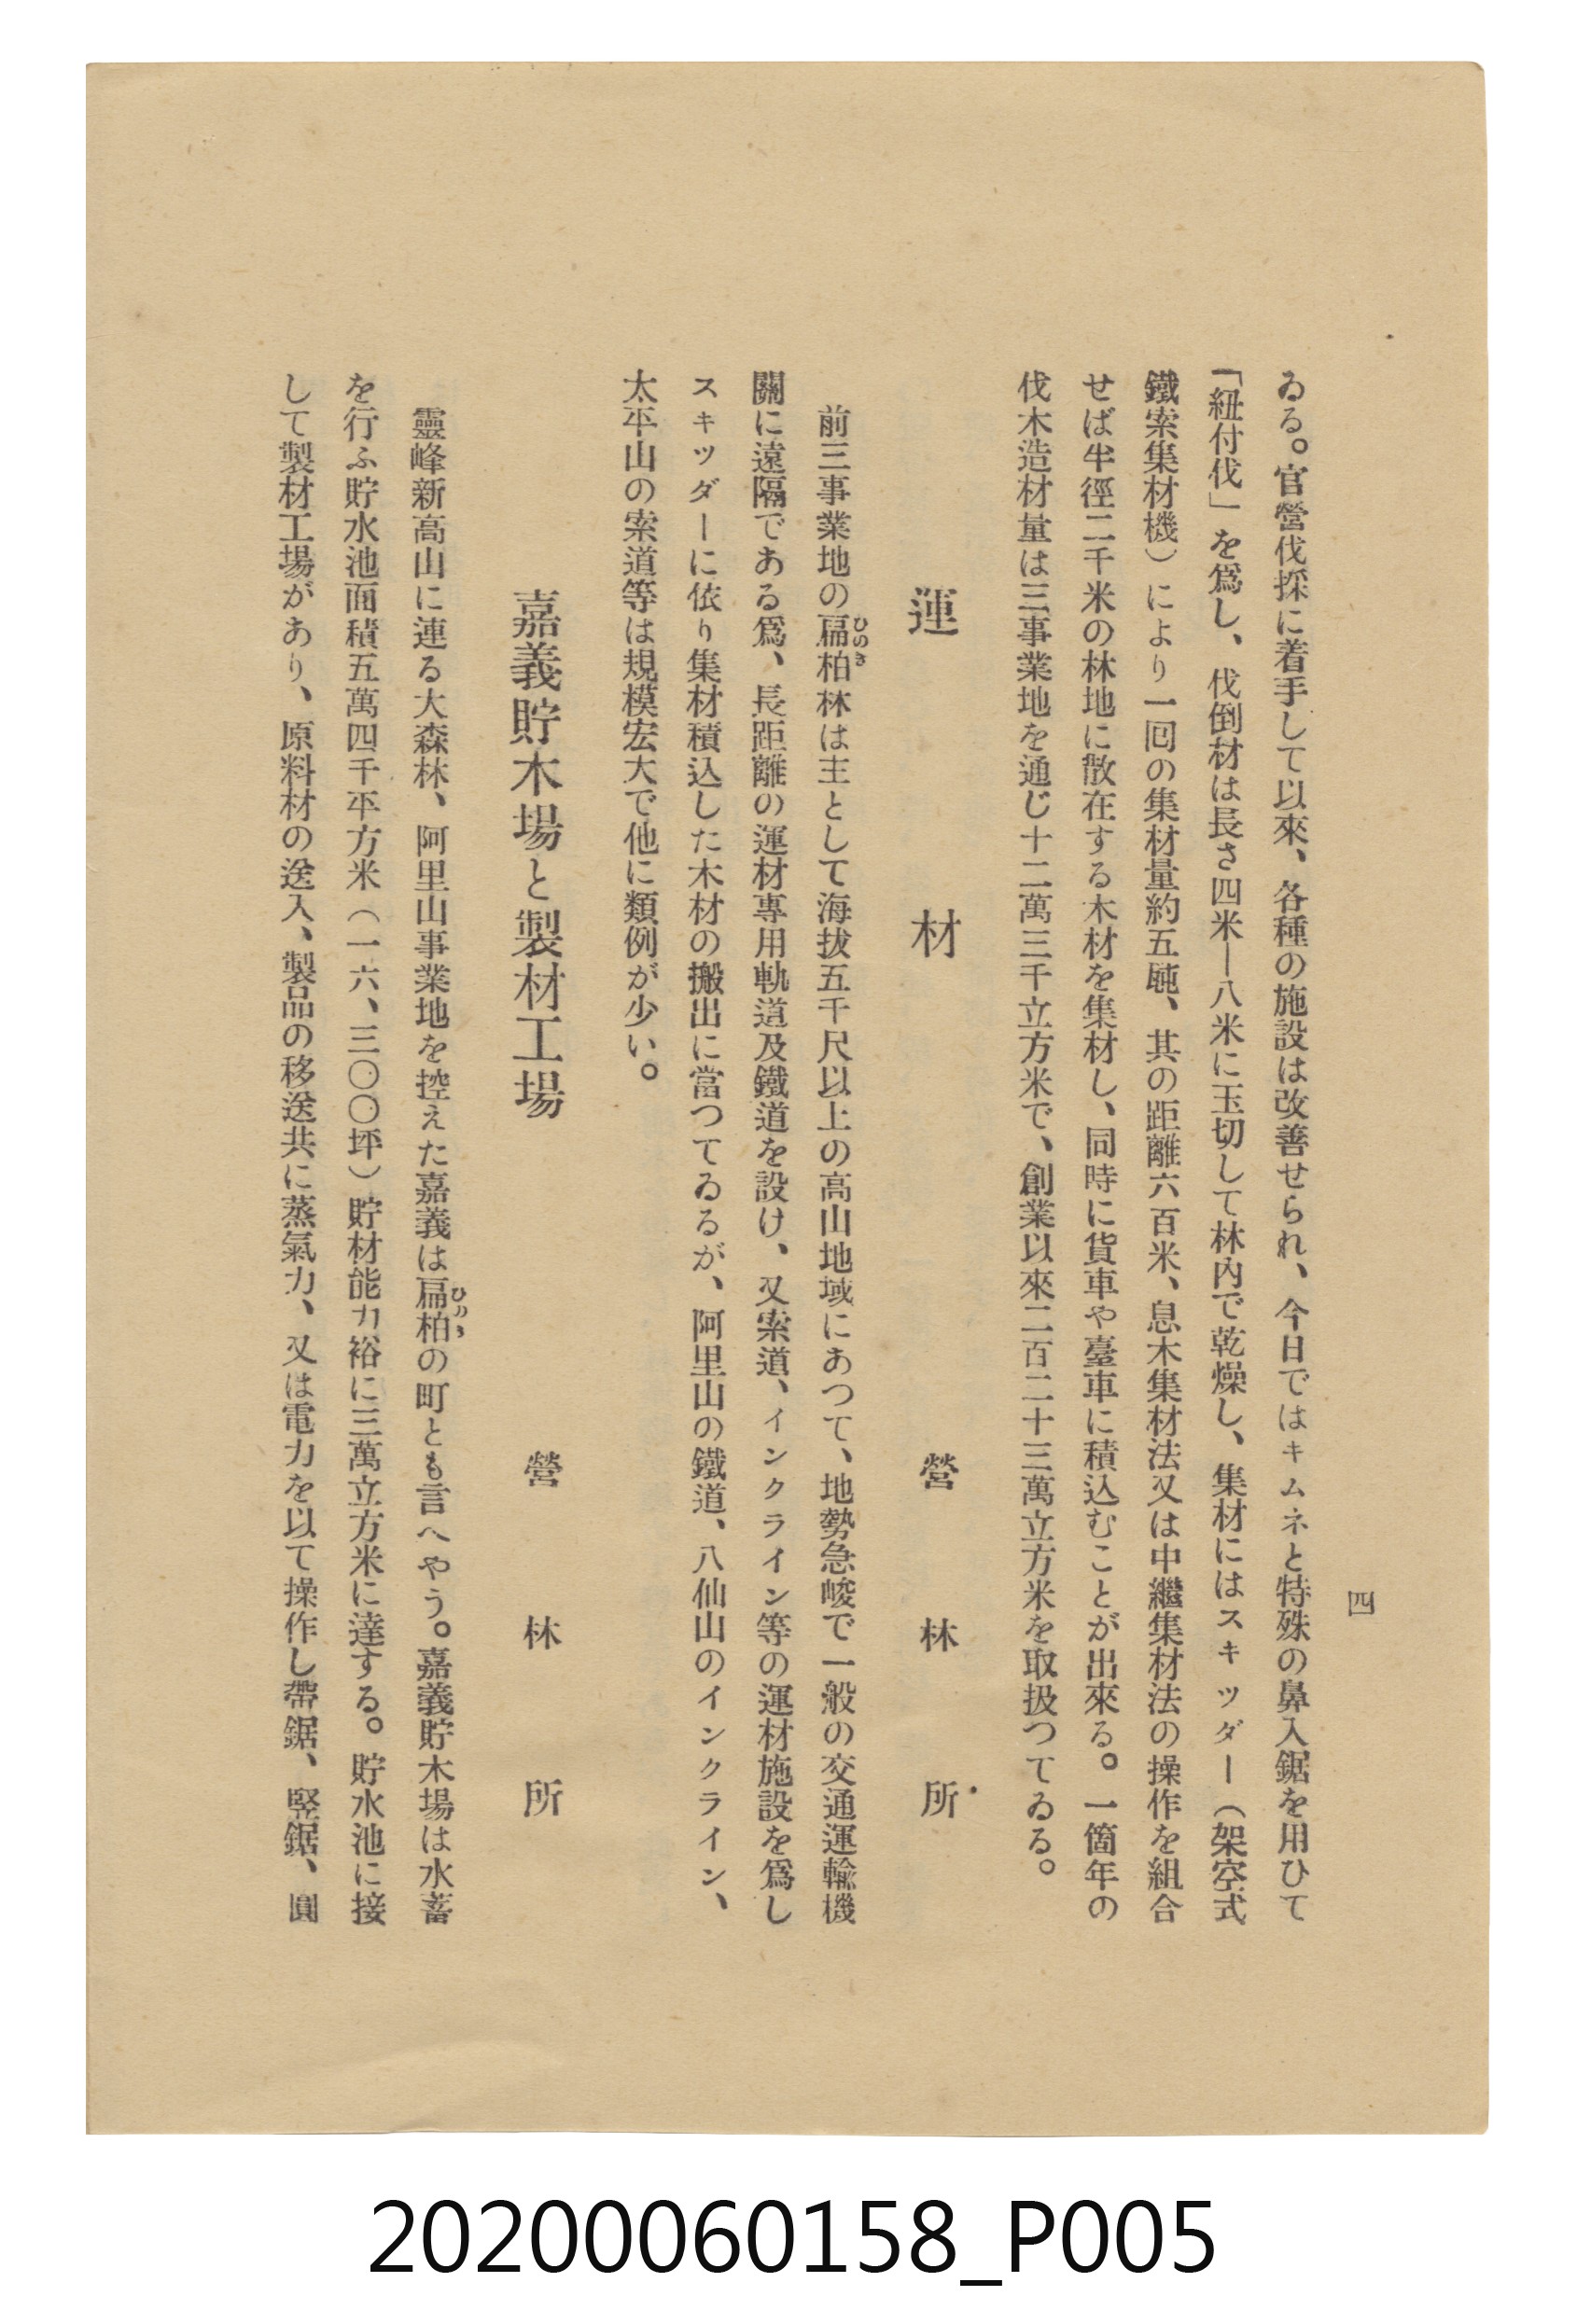 四
ゐる。官營伐採に着手して以來、各種の施設は改善せられ、今日ではキムネと特殊の鼻入鋸を用ひて
「紐付伐」を爲し、伐倒材は長さ四米—八米に玉切して林內で乾燥し、集材にはスキッダー（架空式
鐵索集材機）により一囘の集材量約五瓲、其の距離六百米、息木集材法又は中繼集材法の操作を組合
せば半徑二千米の林地に散在する木材を集材し、同時に貨車や臺車に積込むことが出來る。一箇年の
伐木造材量は三事業地を通じ十二萬三千立方米で、創業以來二百二十三萬立方米を取扱つてゐる。
運材 營林所
前三事業地の扁柏林は主として海拔五千尺以上の高山地域にあつて、地勢急峻で一般の交通運輸機
ひのき
關に遠隔である爲、長距離の運材專用軌道及鐵道を設け、又索道、インクライン等の運材施設を爲し
スキッダーに依り集材積込した木材の搬出に當つてゐるが、阿里山の鐵道、八仙山のインクライン、
太平山の索道等は規模宏大で他に類例が少い。
嘉義貯木場と製材工場 營林所
靈峰新高山に連る大森林、阿里山事業地を控えた嘉義は扁柏の町とも言へやう。嘉義貯木場は水蓄
ひの
を行ふ貯水池面積五萬四千平方米（一六、三〇〇坪）貯材能力裕に三萬立方米に達する。貯水池に接
して製材工場があり、原料材の送入、製品の移送共に蒸氣力、又は電力を以て操作し帶鋸、竪鋸、圓
20200060158_P005